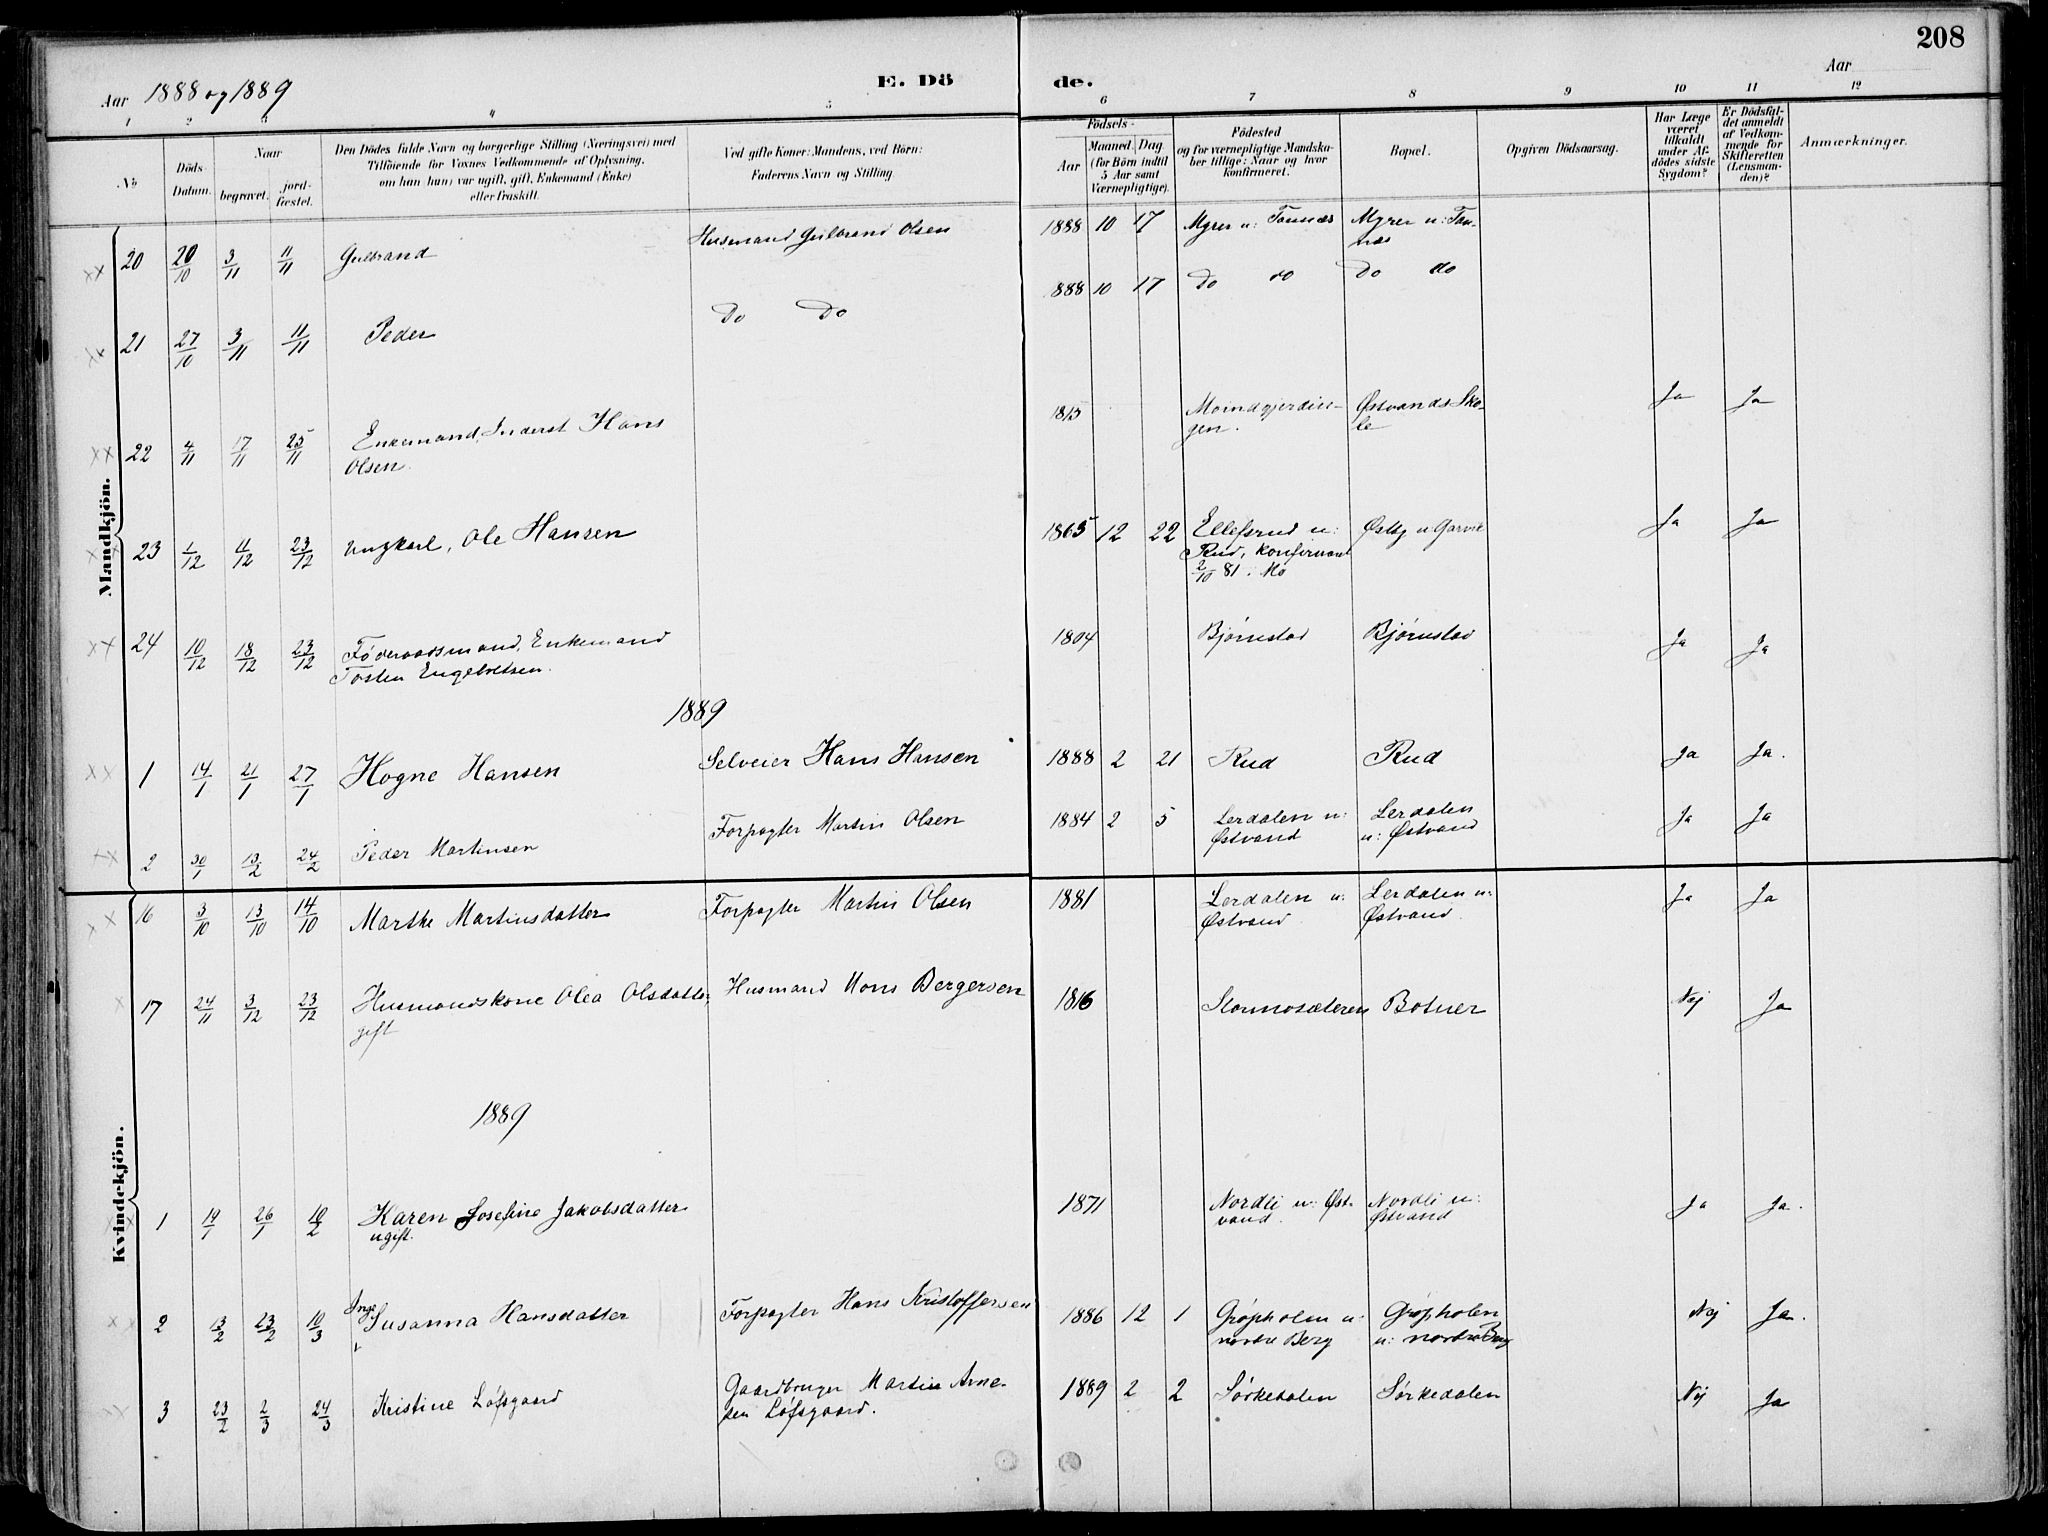 208
Aar 1888 og 1889
E. Dö de.
Aar
1 2 3 4 5 6 7 8 9 10 11 12
No
Döds-Datum.
Naar
begravet.
jord-fæstet.
Den Dödes fulde Navn og borgerlige Stilling (Næringsvei) med
Tilföiende for Voxnes Vedkommende af Oplysning,
om han (hun) var ugift, gift, Enkemand (Enke)
eller fraskilt.
Ved gifte Koner: Mandens, ved Börn:
Faderens Navn og Stilling.
Födsels-
Aar
Maaned. Dag.
(for Börn indtil
5 Aar samt
Værnepligtige).
Födested
og for værnepligtige Mandska-
ber tillige: Naar og hvor
konfirmeret.
Bopæl.
Opgiven Dödsaarsag.
Har Læge
været
tilkaldt
under Af-
dödes sidste
Sygdom?
Er Dödsfal-
det anmeldt
af Vedkom-
mende for
Skifteretten
(Lensman-
den)?
Anmærkninger.
Mandkjön.
20 20/10 3/11 11/11 Gulbrand Husmand Gulbrand Olsen 1888 10 17 Myrer u: Tannæs Myrer u: Tan-
næs
21 27/10 3/11 11/11 Peder Do Do 888 10 17 Do do Do do
22 4/11 17/11 25/11 Enkemand, Inderst Hans 1815 Moindgjerdin- Østvands Sko- Ja Ja
Olsen. gen. le
23 1/12 11/12 23/12 Ungkarl, Ole Hansen 1865 12 22 Ellefsrud u: Østby u Garvik Ja Ja
Rud, konfirmeret
2/10 81 i Mo
24 10/12 18/12 23/12 Føderaadsmand, Enkemand 1804 Bjørnstad Bjørnstad Ja Ja
Tosten Engebretsen.
1889
1 14/1 21/1 27/1 Hogne Hansen Selveier Hans Hansen 1888 2 21 Rud Rud Ja Ja.
2 30/1 13/2 24/2 Peder Martinsen Forpagter Martin Olsen 1884 2 5 Lerdalen u: Lerdalen Ja Ja
Østvand u: Østvand
Kvindekjön.
16 3/10 13/10 14/10 Marthe Martinsdatter Forpagter Martin Olsen 1881 Lerdalen u: Lerdalen u: Ja Ja
Østvand. Østvand.
17 24/11 3/12 23/12 Husmandskone Olea Olsdatter, Husmand Mons Bergersen 1816 Stormosæteren Botner Nej Ja
gift
1889
1 19/1 26/1 10/2 Karen Josefine Jakobsdatter 1871 Nordli u: Øst- Nordli u: Ja Ja.
ugift. vand. Østvand
2 13/2 23/2 10/3 Inga Susanna Hansdatter Forpagter Hans Kristoffersen 1886 12 1 Grøpholen u: Grøpholen Nej Ja.
nordre Berg u: nordre Berg
3 23/2 2/3 24/3 Kristine Løfsgaard Gaardbruger Martin Arne- 1889 2 2 Sørkedalen Sørkedalen Nej Ja
sen Løfsgaard.